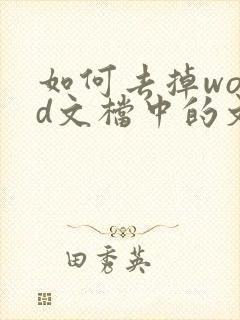 如何去掉wo
d文檔中的
田秀英